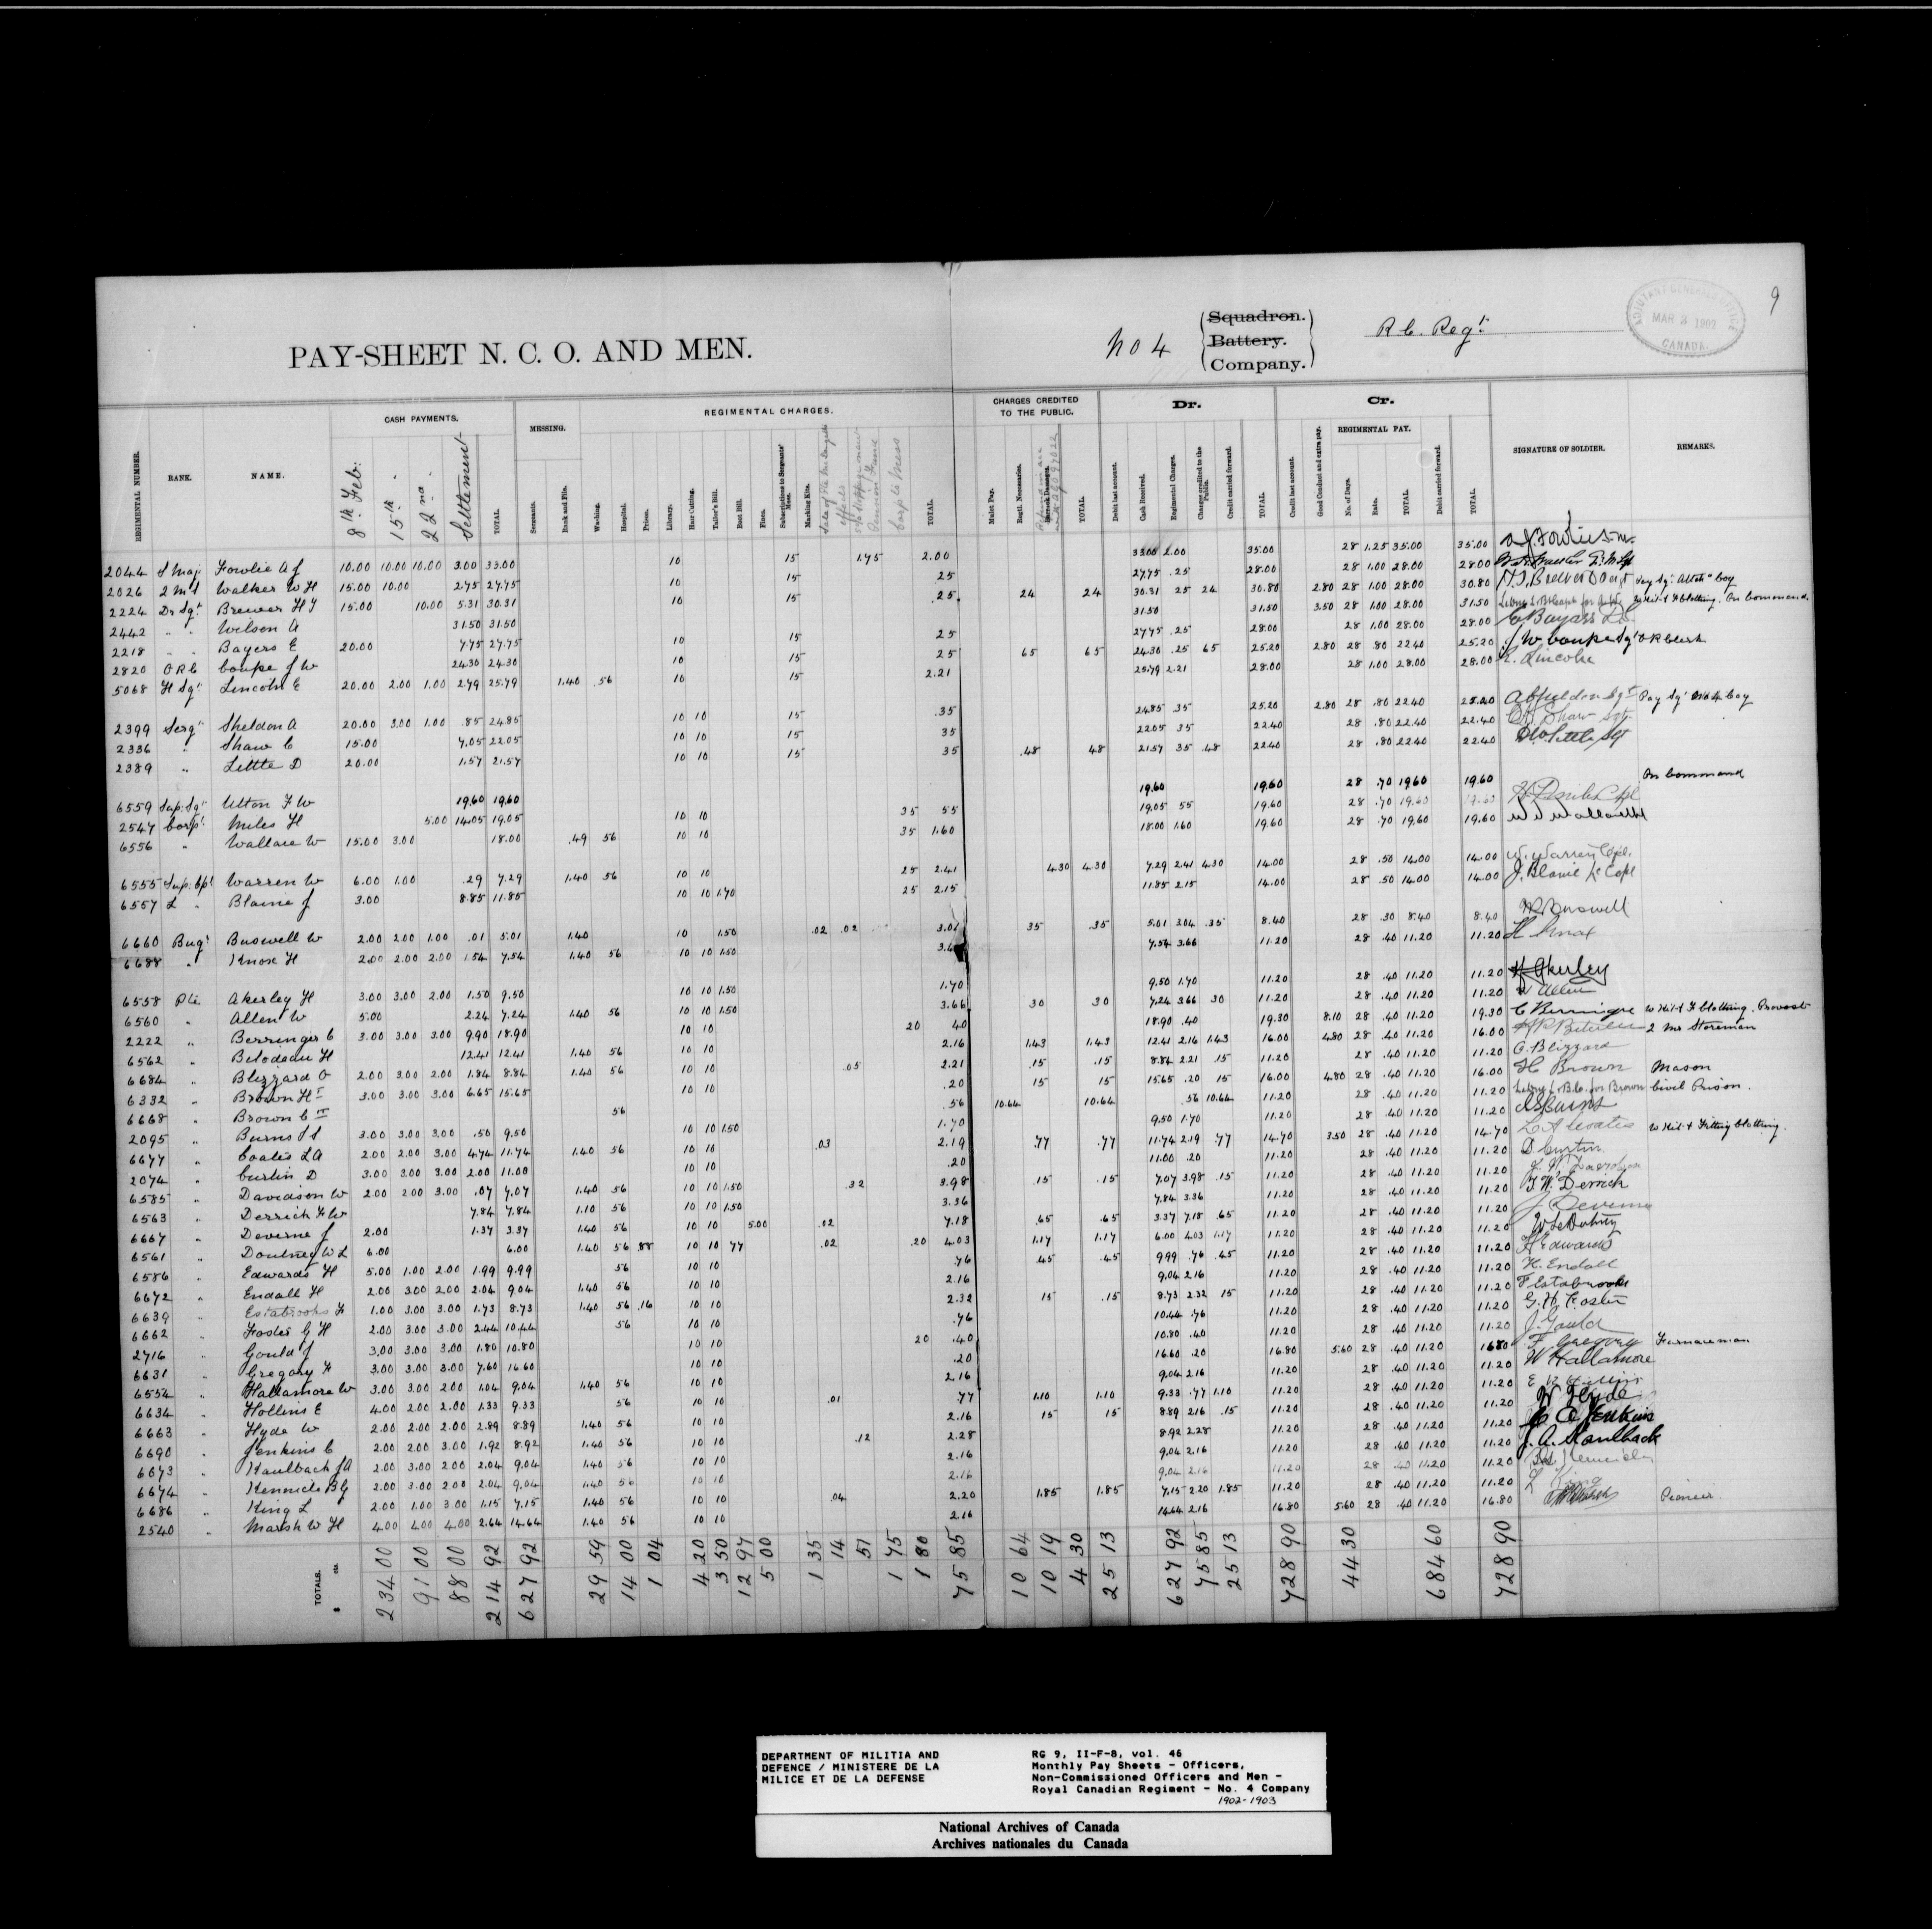 9
PAY-SHEET N. C. O. AND MEN.
No 4
Squadron.
Battery.
Company.
R. C. Regt.
ADJUTANT GENERAL'S OFFICE
MAR 3 1902
CANADA.
REGIMENTAL NUMBER. RANK. NAME. CASH PAYMENTS. MESSING. REGIMENTAL CHARGES. CHARGES CREDITED TO THE PUBLIC. Dr. Cr. SIGNATURE OF SOLDIER. REMARKS.
8th Feb. 15th 22nd Settlement TOTAL Sergeants. Rank and File. Washing. Hospital. Prison. Library. Hair Cutting. Tailor's Bill. Boot Bill. Fines. Subscriptions to Sergeants' Mess. Marking Kits. TOTAL.
Mulct Pay. Regtl. Necessaries. Barrack Damages. TOTAL. Debit last account. Cash Received. Regimental Charges. Charges credited to the Public. Credit carried forward. TOTAL Credit last account. Good Conduct and extra pay. REGIMENTAL PAY. No. of Days. Rate. TOTAL Debit carried forward. TOTAL.
2044 S Maj Fowlie A J 10.00 10.00 10.00 3.00 33.00 10 15 1.75 2.00 33.00 2.00 35.00 28 1.25 35.00 35.00
2026 Q M S Walker W H 15.00 10.00 2.75 27.75 10 15 25 27.75 .25 28.00 28 1.00 28.00 28.00
2224 Dr Sgt Brewer H J 15.00 10.00 5.31 30.31 10 15 .25 24 24 30.31 25 24 30.80 2.80 28 1.00 28.00 30.80
2442 " " Wilson A 31.50 31.50 31.50 31.50 3.50 28 1.00 28.00 31.50 On Command.
2218 " " Bayers E 20.00 7.75 27.75 10 15 25 27.75 .25 28.00 28 1.00 28.00 28.00
2820 O R C Coupe J W 24.30 24.30 10 15 25 65 65 24.30 .25 65 25.20 2.80 28 80 22.40 25.20 J W Coupe Sgt O R Clerk
5068 H Sgt Lincoln E 20.00 2.00 1.00 2.79 25.79 1.40 .56 10 15 2.21 25.79 2.21 28.00 28 1.00 28.00 28.00 E. Lincoln
2399 Sergt Sheldon A 20.00 3.00 1.00 .85 24.85 10 10 15 .35 24.85 .35 25.20 2.80 28 .80 22.40 25.20 Pay Sgt No 4 Coy
2336 " Shaw C 15.00 7.05 22.05 10 10 15 35 22.05 35 22.40 28 .80 22.40 22.40
2389 " Little D 20.00 1.57 21.57 10 10 15 35 .48 48 21.57 35 .48 22.40 28 .80 22.40 22.40
6559 Sup. Sgt Ulton F W 19.60 19.60 19.60 19.60 28 .70 19.60 19.60 On Command
2547 Corpl Miles H 5.00 14.05 19.05 10 10 35 55 19.05 55 19.60 28 .70 19.60 19.60
6556 " Wallace W 15.00 3.00 18.00 .49 56 10 10 35 1.60 18.00 1.60 19.60 28 .70 19.60 19.60
6555 Sup. Cpl Warren W 6.00 1.00 .29 7.29 1.40 56 10 10 25 2.41 4.30 4.30 7.29 2.41 4.30 14.00 28 .50 14.00 14.00 W. Warren Cpl.
6557 L " Blaine J 3.00 8.85 11.85 10 10 1.70 25 2.15 11.85 2.15 14.00 28 .50 14.00 14.00
6660 Bugr Buswell W 2.00 2.00 1.00 .01 5.01 1.40 10 1.50 .02 .02 35 .35 5.01 3.04 .35 8.40 28 .30 8.40 8.40
6688 " Knox H 2.00 2.00 2.00 1.54 7.54 1.40 56 10 10 1.50 7.54 3.66 11.20 28 .40 11.20 11.20 H Knox
6558 Pte Akerley H 3.00 3.00 2.00 1.50 9.50 10 10 1.50 1.70 9.50 1.70 11.20 28 .40 11.20 11.20 H Akerley
6560 " Allen W 5.00 2.24 7.24 1.40 56 10 10 1.50 3.66 30 30 7.24 3.66 30 11.20 28 .40 11.20 11.20 W Allen
2222 " Berringer C 3.00 3.00 3.00 9.90 18.90 10 10 20 40 18.90 .40 19.30 8.10 28 .40 11.20 19.30
6562 " Bilodeau H 12.41 12.41 1.40 56 10 10 2.16 1.43 1.43 12.41 2.16 1.43 16.00 4.80 28 .40 11.20 16.00 Storeman
6684 " Blizzard O 2.00 3.00 2.00 1.84 8.84 1.40 56 10 10 .05 2.21 .15 .15 8.84 2.21 .15 11.20 28 .40 11.20 11.20 O. Blizzard
6332 " Brown H 3.00 3.00 3.00 6.65 15.65 10 10 .20 15 15 15.65 .20 15 16.00 4.80 28 .40 11.20 16.00 H Brown Mason
6668 " Brown C 56 .56 10.64 10.64 .56 10.64 11.20 28 .40 11.20 11.20 Civil Prison.
2095 " Burns 3.00 3.00 3.00 .50 9.50 10 10 1.50 1.70 9.50 1.70 11.20 28 .40 11.20 11.20
6677 " Coates L A 2.00 2.00 3.00 4.74 11.74 1.40 56 10 10 .03 2.19 .77 .77 11.74 2.19 .77 14.70 3.50 28 .40 11.20 14.70 L A Coates
2074 " Curtin D 3.00 3.00 3.00 2.00 11.00 10 10 .20 11.00 .20 11.20 28 .40 11.20 11.20 D Curtin
6585 " Davidson W 2.00 2.00 3.00 .07 7.07 1.40 56 10 10 1.50 .32 3.98 .15 .15 7.07 3.98 .15 11.20 28 .40 11.20 11.20
6563 " Derrick F W 7.84 7.84 1.10 56 10 10 1.50 3.36 7.84 3.36 11.20 28 .40 11.20 11.20 F. W. Derrick
6667 " Deverne J 2.00 1.37 3.37 1.40 56 10 10 5.00 .02 7.18 .65 .65 3.37 7.18 .65 11.20 28 .40 11.20 11.20
6561 " Doutney W L 6.00 6.00 1.40 56 .88 10 10 77 .02 .20 4.03 1.17 1.17 6.00 4.03 1.17 11.20 28 .40 11.20 11.20
6586 " Edwards H 5.00 1.00 2.00 1.99 9.99 56 10 10 .76 .45 .45 9.99 .76 .45 11.20 28 .40 11.20 11.20 H Edwards
6672 " Endall H 2.00 3.00 2.00 2.04 9.04 1.40 56 10 10 2.16 9.04 2.16 11.20 28 .40 11.20 11.20 H. Endall
6639 " Estabrooks F 1.00 3.00 3.00 1.73 8.73 1.40 56 .16 10 10 2.32 15 .15 8.73 2.32 15 11.20 28 .40 11.20 11.20 F Estabrooks
6662 " Foster G H 2.00 3.00 3.00 2.44 10.44 56 10 10 .76 10.44 .76 11.20 28 .40 11.20 11.20 G. H. Foster
2716 " Gould J 3.00 3.00 3.00 1.80 10.80 10 10 20 .40 10.80 .40 11.20 28 .40 11.20 11.20 J. Gould
6631 " Gregory F 3.00 3.00 3.00 7.60 16.60 10 10 .20 16.60 .20 16.80 5.60 28 .40 11.20 16.80 F Gregory Furnaceman
6554 " Hallamore W 3.00 3.00 2.00 1.04 9.04 1.40 56 10 10 2.16 9.04 2.16 11.20 28 .40 11.20 11.20 W Hallamore
6634 " Hollins E 4.00 2.00 2.00 1.33 9.33 56 10 10 .01 .77 1.10 1.10 9.33 .77 1.10 11.20 28 .40 11.20 11.20
6663 " Hyde W 2.00 2.00 2.00 2.89 8.89 1.40 56 10 10 2.16 15 15 8.89 2.16 .15 11.20 28 .40 11.20 11.20 W Hyde
6690 " Jenkins C 2.00 2.00 3.00 1.92 8.92 1.40 56 10 10 .12 2.28 8.92 2.28 11.20 28 .40 11.20 11.20 C Jenkins
6673 " Kaulback J A 2.00 3.00 2.00 2.04 9.04 1.40 56 10 10 2.16 9.04 2.16 11.20 28 .40 11.20 11.20 J. A. Kaulback
6674 " Kennick B G 2.00 3.00 2.00 2.04 9.04 1.40 56 10 10 2.16 9.04 2.16 11.20 28 .40 11.20 11.20
6686 " King L 2.00 1.00 3.00 1.15 7.15 1.40 56 10 10 .04 2.20 1.85 1.85 7.15 2.20 1.85 11.20 28 .40 11.20 11.20 L King
2540 " Marsh W H 4.00 4.00 4.00 2.64 14.64 1.40 56 10 10 2.16 14.64 2.16 16.80 5.60 28 .40 11.20 16.80 Pioneer.
TOTALS. 234 00 91 00 88 00 214 92 627 92 29 59 14 00 1 04 4 20 3 50 12 97 5 00 1 35 14 51 1 75 1 80 75 85 10 64 10 19 4 30 25 13 627 92 75 85 25 13 728 90 44 30 684 60 728 90
DEPARTMENT OF MILITIA AND
DEFENCE / MINISTERE DE LA
MILICE ET DE LA DEFENSE
RG 9, II-F-8, vol. 46
Monthly Pay Sheets - Officers,
Non-Commissioned Officers and Men -
Royal Canadian Regiment - No. 4 Company
1902-1903
National Archives of Canada
Archives nationales du Canada